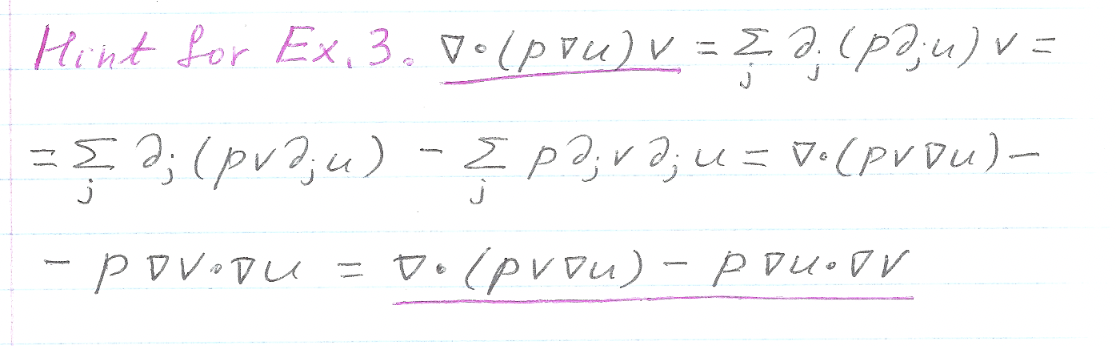 Hint for Ex. 3. ∇·(p∇u)v = Σ_j ∂_j(p∂_j u)v =
= Σ_j ∂_j(pv∂_j u) - Σ_j p∂_j v ∂_j u = ∇·(pv∇u) -
- p∇v·∇u = ∇·(pv∇u) - p∇u·∇v